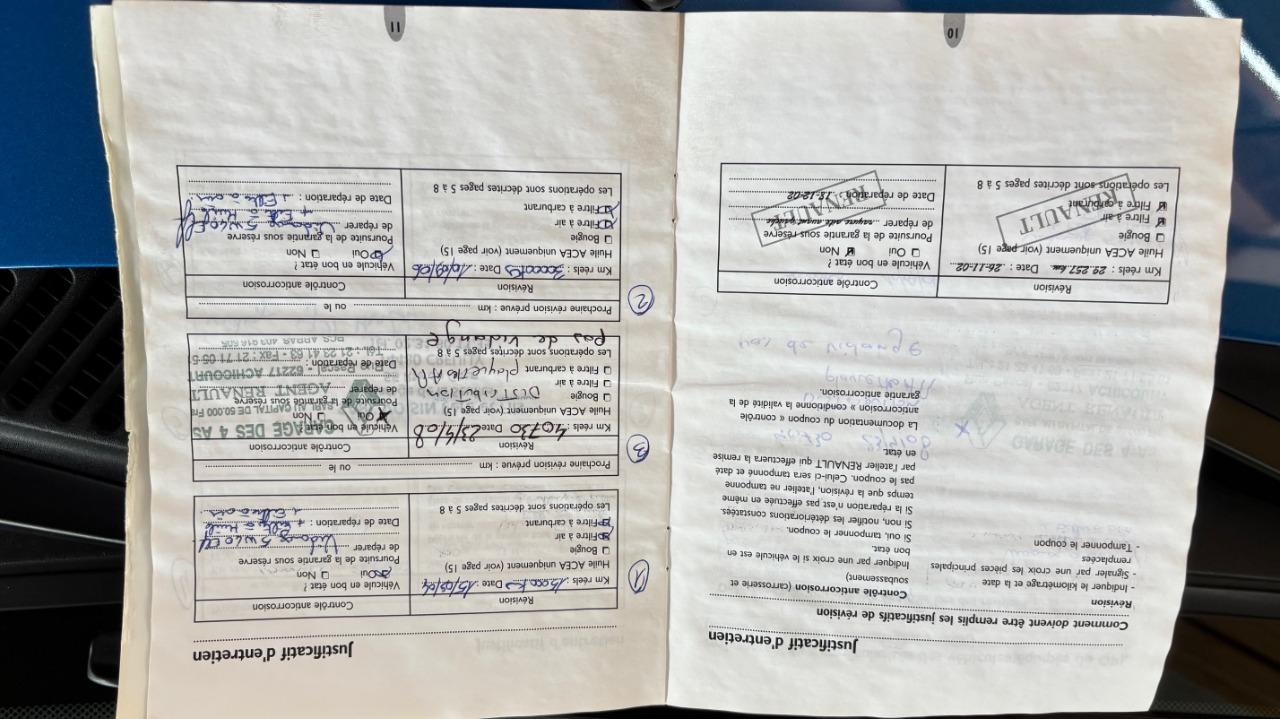 Justificatif d'entretien
Comment doivent être remplis les justificatifs de révision
Révision
- Indiquer le kilométrage et la date
- Signaler par une croix les pièces principales
remplacées
- Tamponner le coupon
Contrôle anticorrosion (carrosserie et
soubassement)
Indiquer par une croix si le véhicule est en
bon état.
Si oui, tamponner le coupon.
Si non, notifier les détériorations constatées.
Si la réparation n'est pas effectuée en même
temps que la révision, l'atelier ne tamponne
pas le coupon. Celui-ci sera tamponné et daté
par l'atelier RENAULT qui effectuera la remise
en état.
La documentation du coupon « contrôle
anticorrosion » conditionne la validité de la
garantie anticorrosion.
Révision
Km réels : 29.257 km Date : 26-11-02
Huile ACEA uniquement (voir page 15)
Bougie
Filtre à air
Filtre à carburant
Les opérations sont décrites pages 5 à 8
RENAULT
Contrôle anticorrosion
Véhicule en bon état ?
Oui Non
Poursuite de la garantie sous réserve
de réparer :
Date de réparation : 18-12-02
RENAULT
10
Justificatif d'entretien
1
Révision
Km réels : Date : 15/09/04
Huile ACEA uniquement (voir page 15)
Bougie
Filtre à air
Filtre à carburant
Les opérations sont décrites pages 5 à 8
Contrôle anticorrosion
Véhicule en bon état ?
Oui Non
Poursuite de la garantie sous réserve
de réparer Vidange 5w40
Date de réparation : + Filtre à Huile
+ Filtre à air
Prochaine révision prévue : km ou le
3
Révision
Km réels : 40730 Date : 23/4/08
Huile ACEA uniquement (voir page 15)
Bougie
DISTRIBUTION
Filtre à air
Filtre à carburant plaquettes AR
Les opérations sont décrites pages 5 à 8
pas de vidange
Contrôle anticorrosion
Véhicule en bon état ?
Oui Non
Poursuite de la garantie sous réserve
de réparer
Date de réparation :
GARAGE DES 4 AS
SARL AU CAPITAL DE 50.000 Frs
AGENT RENAULT
Rue Pascal - 62217 ACHICOURT
Tél. : 21 23 41 63 - Fax : 21 71 05 5
Prochaine révision prévue : km ou le
2
Révision
Km réels : Date : 10/09/06
Huile ACEA uniquement (voir page 15)
Bougie
Filtre à air
Filtre à carburant
Les opérations sont décrites pages 5 à 8
Contrôle anticorrosion
Véhicule en bon état ?
Oui Non
Poursuite de la garantie sous réserve
de réparer Vidange 5w40
+ Filtre à Huile
Date de réparation : + Filtre à air
11